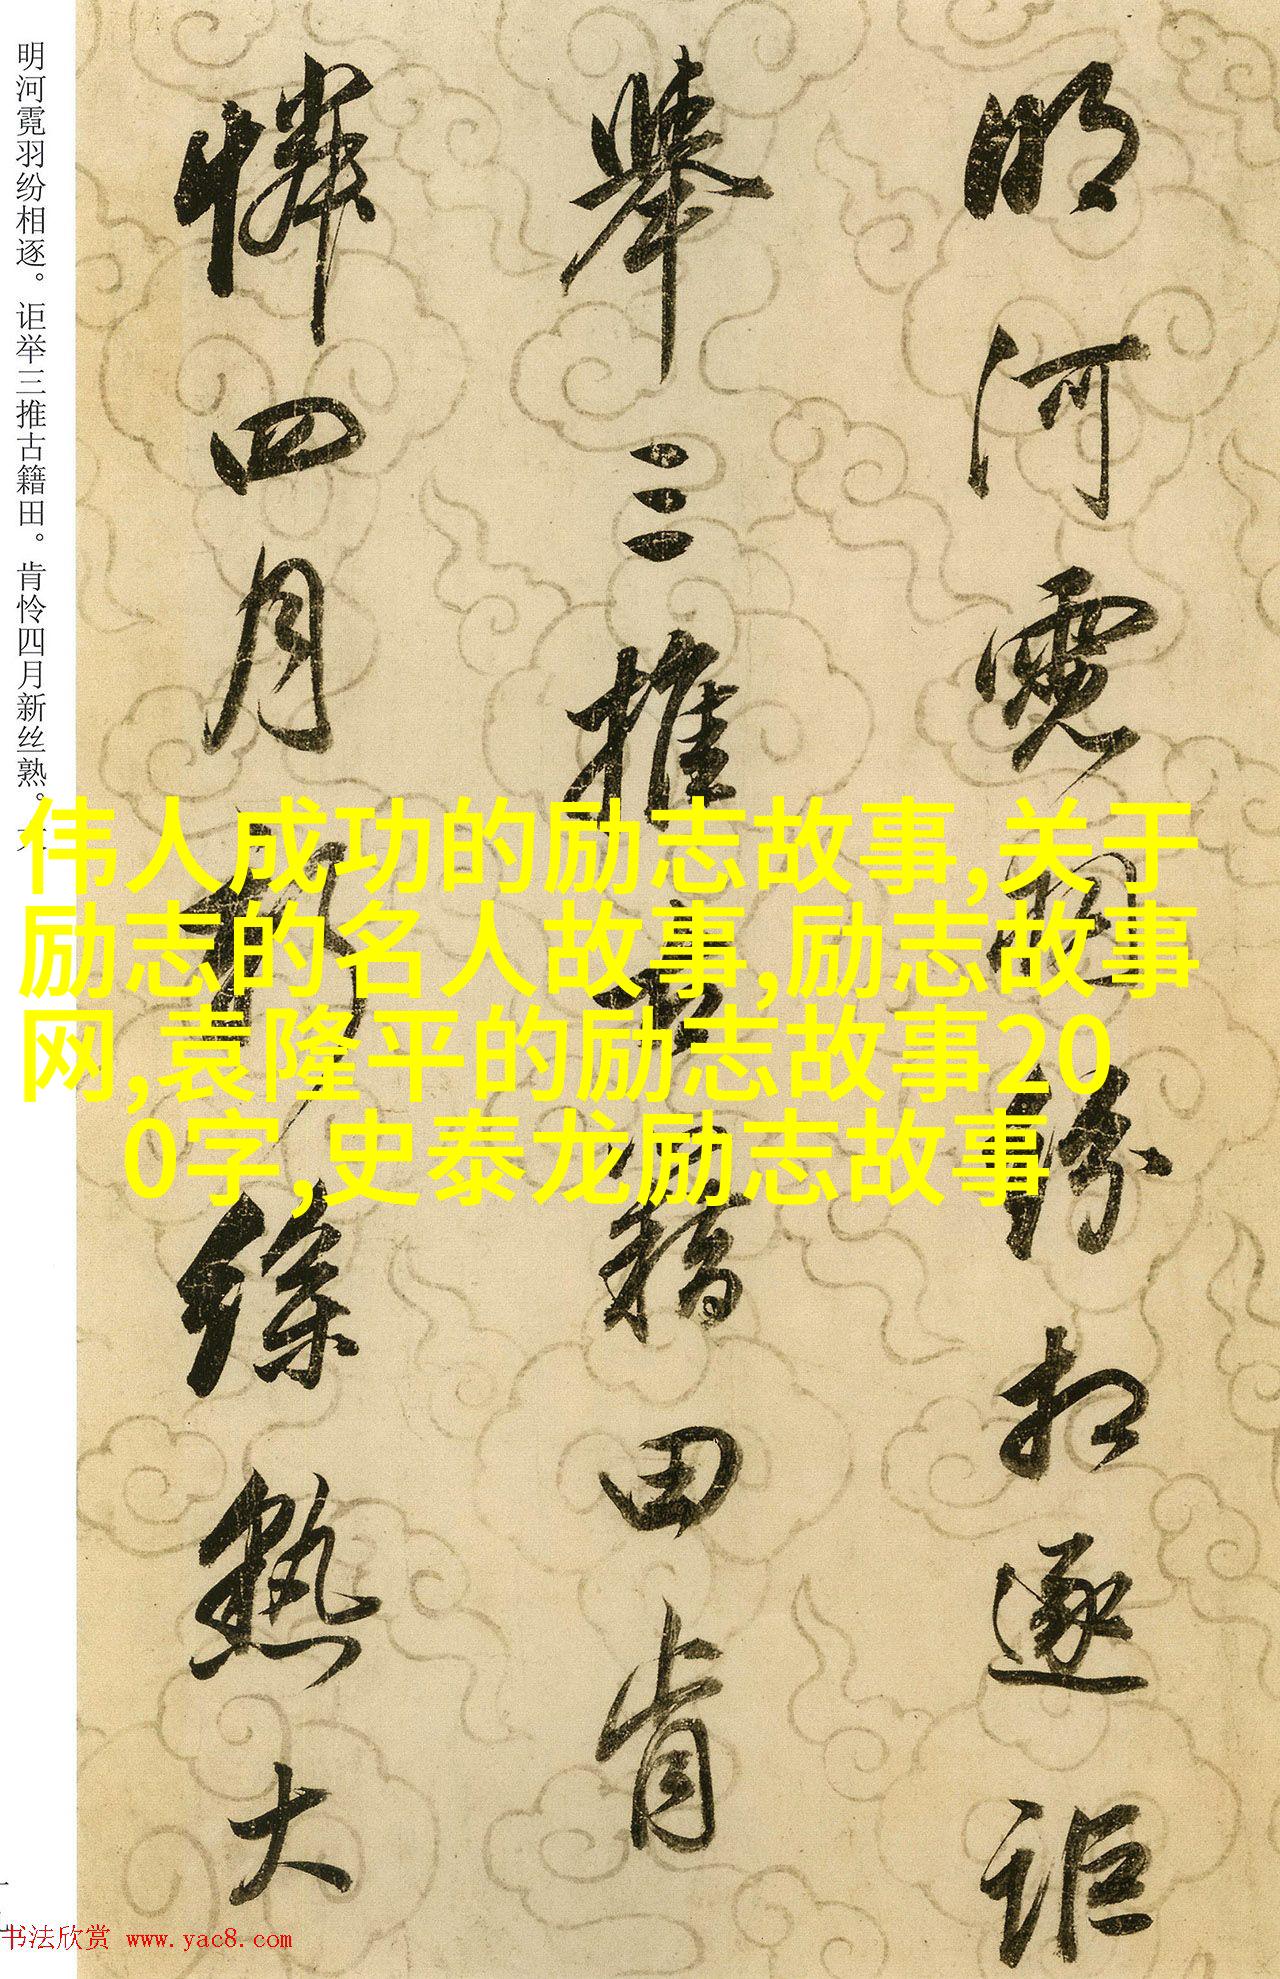 明河霓羽纷相逐。讵举三推古籍田。肯怜四月新丝熟。大
明河霓羽纷相逐讵
举三推古籍田肯
怜四月新丝熟大
伟人成功的励志故事,关于
励志的名人故事,励志故事
网,袁隆平的励志故事20
0字,史泰龙励志故事
书法欣赏 www.yac8.com